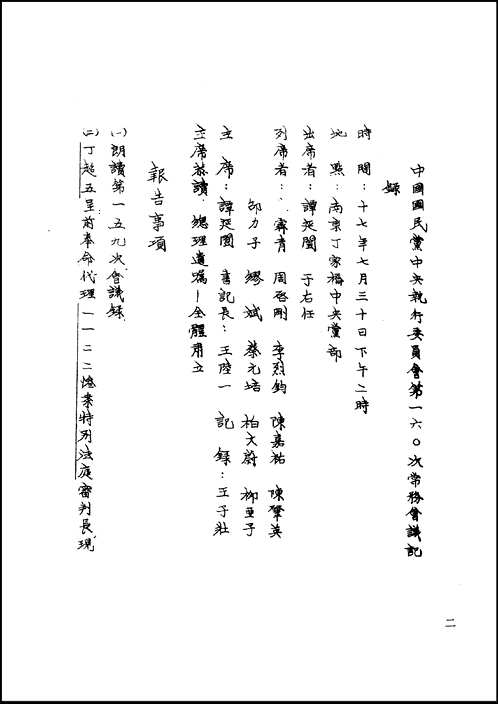 中國國民黨中央執行委員會第一六〇次常務會議記
錄
時間：十七年七月三十日下午二時
地點：南京丁家橋中央黨部
出席者：譚延闓 于右任
列席者：霖青 周啓剛 李烈鈞 陳嘉祐 陳肇英
邵力子 繆斌 蔡元培 柏文蔚 柳亞子
主席：譚延闓 書記長：王陸一 記錄：王子壯
主席恭讀 總理遺囑—全體肅立
報告事項
(一)朗讀第一五九次會議錄
(二)丁超五呈前奉命代理一一二二慘案特別法庭審判長現
二